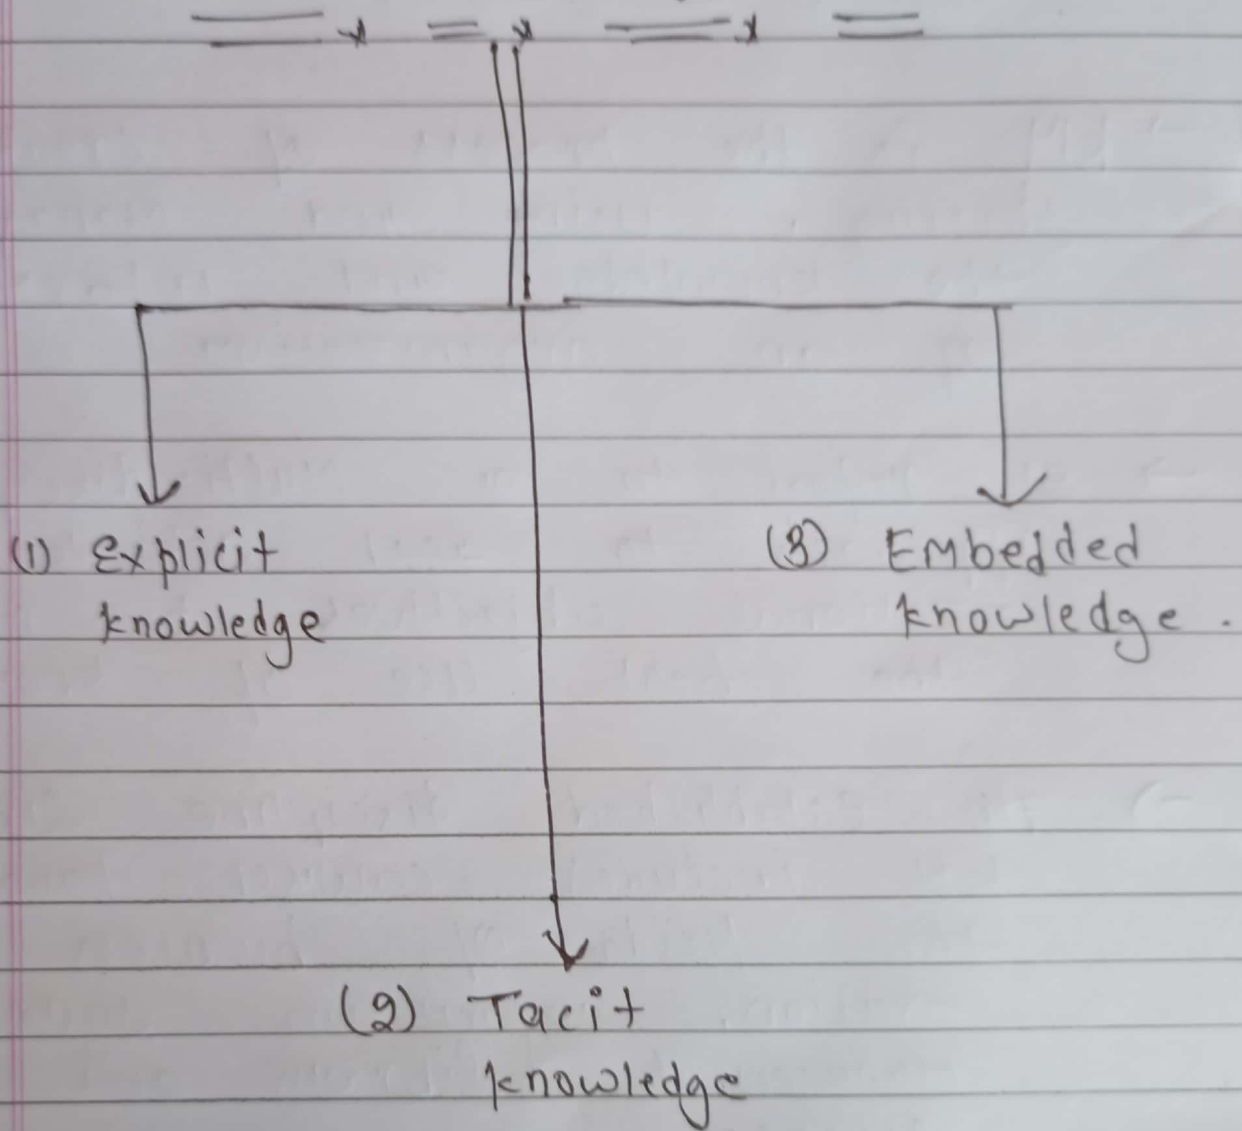 (1) Explicit
knowledge
(3) Embedded
knowledge.
(2) Tacit
knowledge